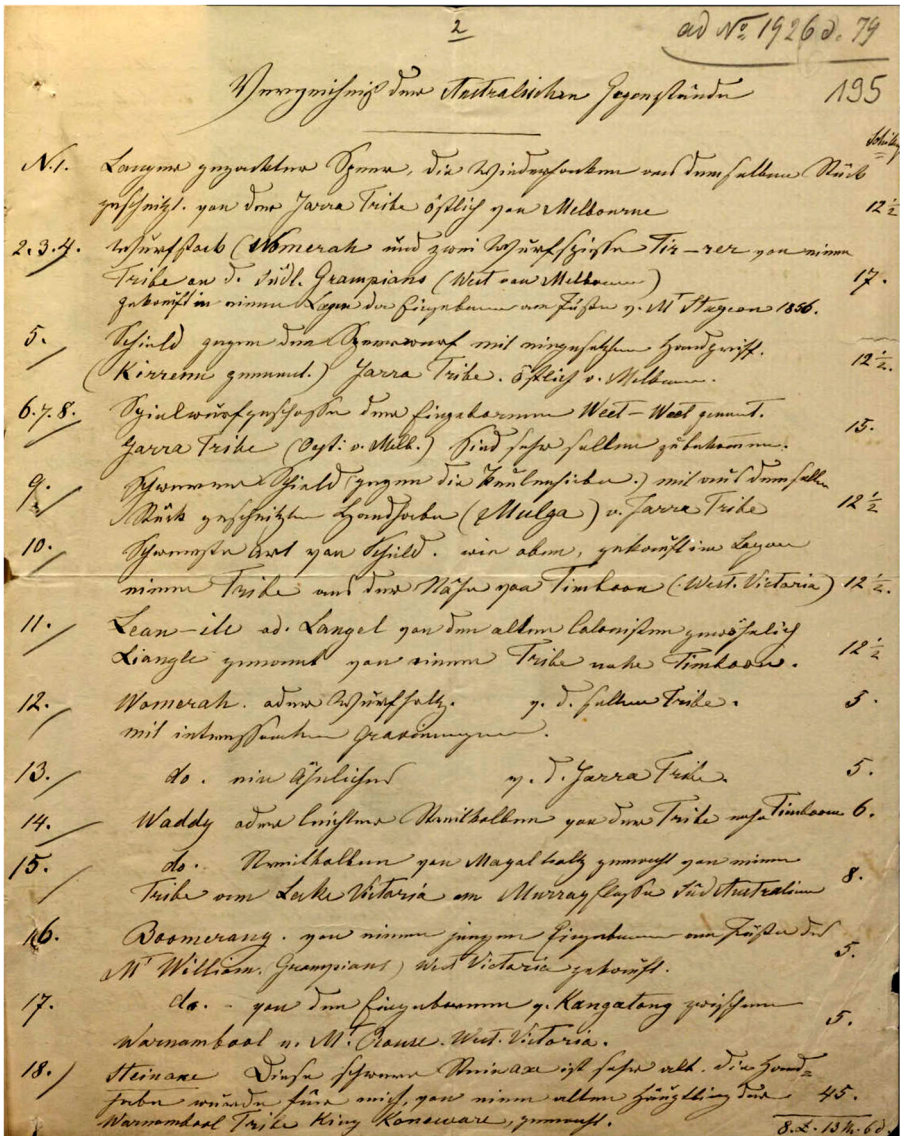 2
ad No 1926 d. 79
195
Verzeichniß der Australischen Gegenstände
Schilling
N. 1. Langer gezackter Speer, die Wiederhacken aus demselben Stück
geschnitzt. von der Jarra Tribe östlich von Melbourne 12 ½
2. 3. 4. Wurfstock (Womerah und zwei Wurfspieße Tir-rer von einem
Tribe an d. südl. Grampians (West von Melbourne) 17.
gekauft in einem Lager der Eingebornen am Fuße v. Mt Stugeon 1856.
5. Schield gegen den Speerwurf mit eingesetztem Handgriff.
(Kirrem genannt.) Jarra Tribe. östlich v. Melbourne. 12 ½.
6. 7. 8. Spielwurfgeschoße der Eingebornen Weet-Weet genant.
Jarra Tribe (Oest: v. Melb.) Sind sehr selten zu bekommen. 15.
9. Schwerer Schield (gegen die Keulenhiebe.) mit aus demselben
Stück geschnitzten Handhabe (Mulga) v. Jarra Tribe 12 ½
10. Schwerste Art von Schild. wie oben, gekauft im Lager
einem Tribe aus der Nähe von Timboon (West. Victoria) 12 ½.
11. Lean-ile od. Langel von den alten Colonisten gewöhnlich
Liangle genannt von einem Tribe nahe Timboon. 12 ½
12. Womerah. oder Wurfholz. v. d. selben Tribe. 5.
mit interessanten Gravierungen.
13. do. ein Ähnliches v. d. Jarra Tribe. 5.
14. Waddy oder leichter Streitkolben von der Tribe nahe Timboon 6.
15. do. Streitkolben von Mayal holz gemacht von einem
Tribe vom Lake Victoria am Murrayfluße Süd Australien 8.
16. Boomerang. von einem jungen Eingebornen am Fuße des
Mt William. Grampians) West Victoria gekauft. 5.
17. do. - von den Eingebornen v. Kangatong zwischen
Warnambool u. Mt. Rouse. West. Victoria. 5.
18. Steinaxe Diese schwere Steinaxe ist sehr alt. die Hand=
habe wurde für mich, von einem alten Häuptling der 45.
Warnambool Tribe King Konoware, gemacht.
8. £. 13 Sh. 6 d.